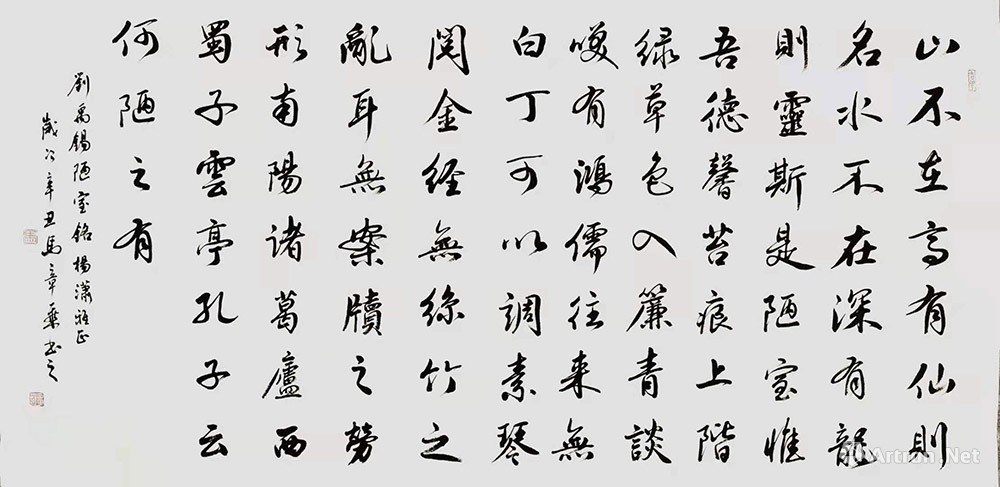 山不在高有仙則
名水不在深有龍
則靈斯是陋室惟
吾德馨苔痕上階
緑草色入簾青談
咲有鴻儒往來無
白丁可以調素琴
閱金經無絲竹之
亂耳無案牘之勞
形南陽諸葛廬西
蜀子雲亭孔子云
何陋之有
劉禹錫陋室銘 楊瀟雅正
歲次辛丑馬章乘书之
Artron.Net